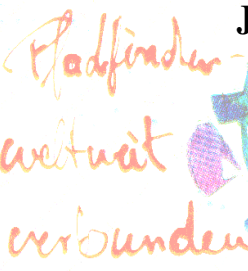 J
Pfadfinder-
weltweit
verbunden